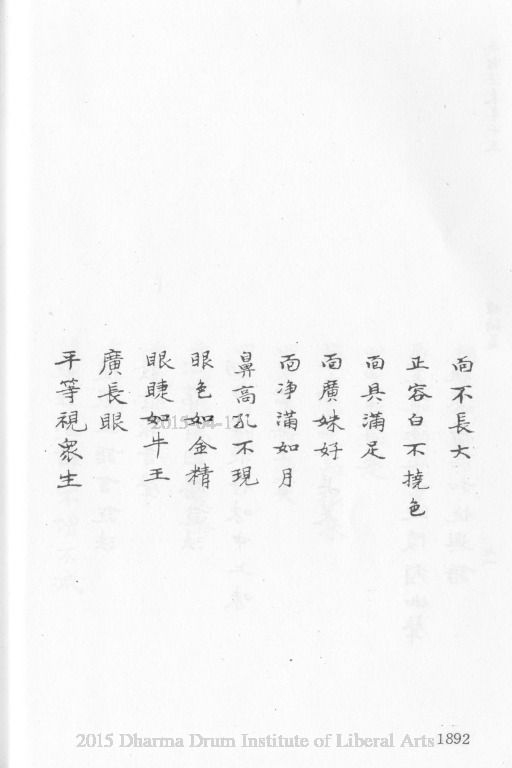 面不長大
正容白不撓色
面具滿足
面廣姝好
面净滿如月
鼻高孔不現
眼色如金精
眼睫如牛王
廣長眼
平等視衆生
2015-04-17
2015 Dharma Drum Institute of Liberal Arts
1892